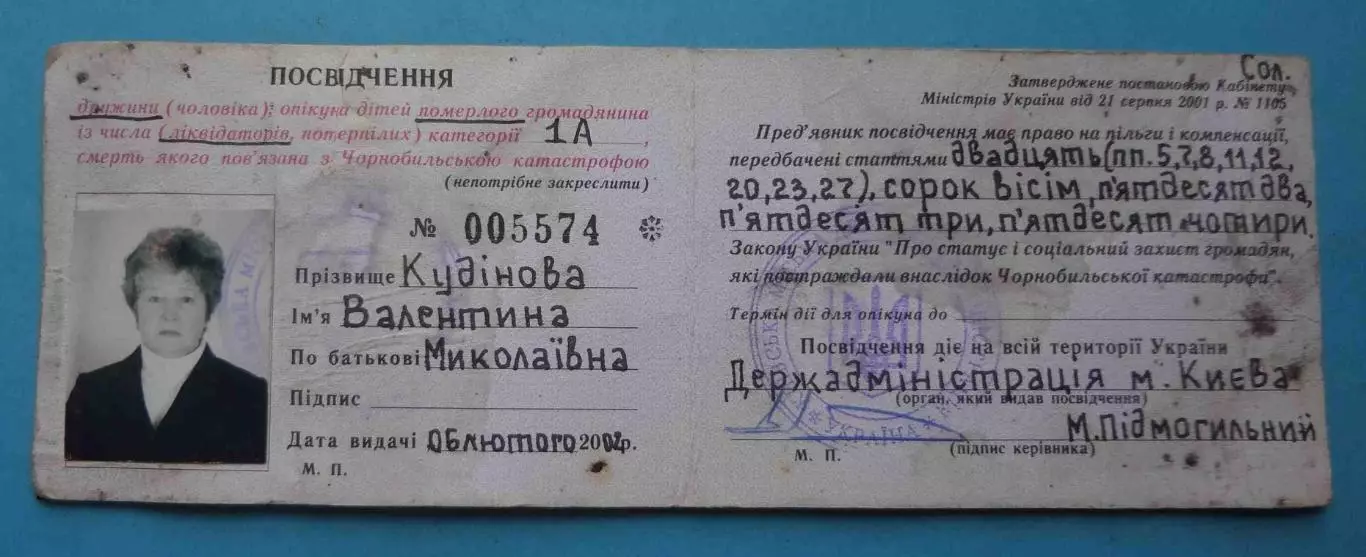 ПОСВІДЧЕННЯ
дружини (чоловіка); опікуна дітей померлого громадянина
із числа (ліквідаторів, потерпілих) категорії 1А,
смерть якого пов'язана з Чорнобильською катастрофою
(непотрібне закреслити)
№ 005574
Прізвище Кудінова
Ім'я Валентина
По батькові Миколаївна
Підпис
Дата видачі 06 лютого 2002р.
М. П.
Сол.
Затверджене постановою Кабінету
Міністрів України від 21 серпня 2001 р. № 1105
Пред'явник посвідчення має право на пільги і компенсації,
передбачені статтями двадцять (пп. 5,7,8,11,12,
20,23,27), сорок вісім, п'ятдесят два,
п'ятдесят три, п'ятдесят чотири.
Закону України "Про статус і соціальний захист громадян,
які постраждали внаслідок Чорнобильської катастрофи".
Термін дії для опікуна до
Посвідчення діє на всій території України
Держадміністрація м. Києва
(орган, який видав посвідчення)
М.Підмогильний
(підпис керівника)
М. П.
УКРАЇНА